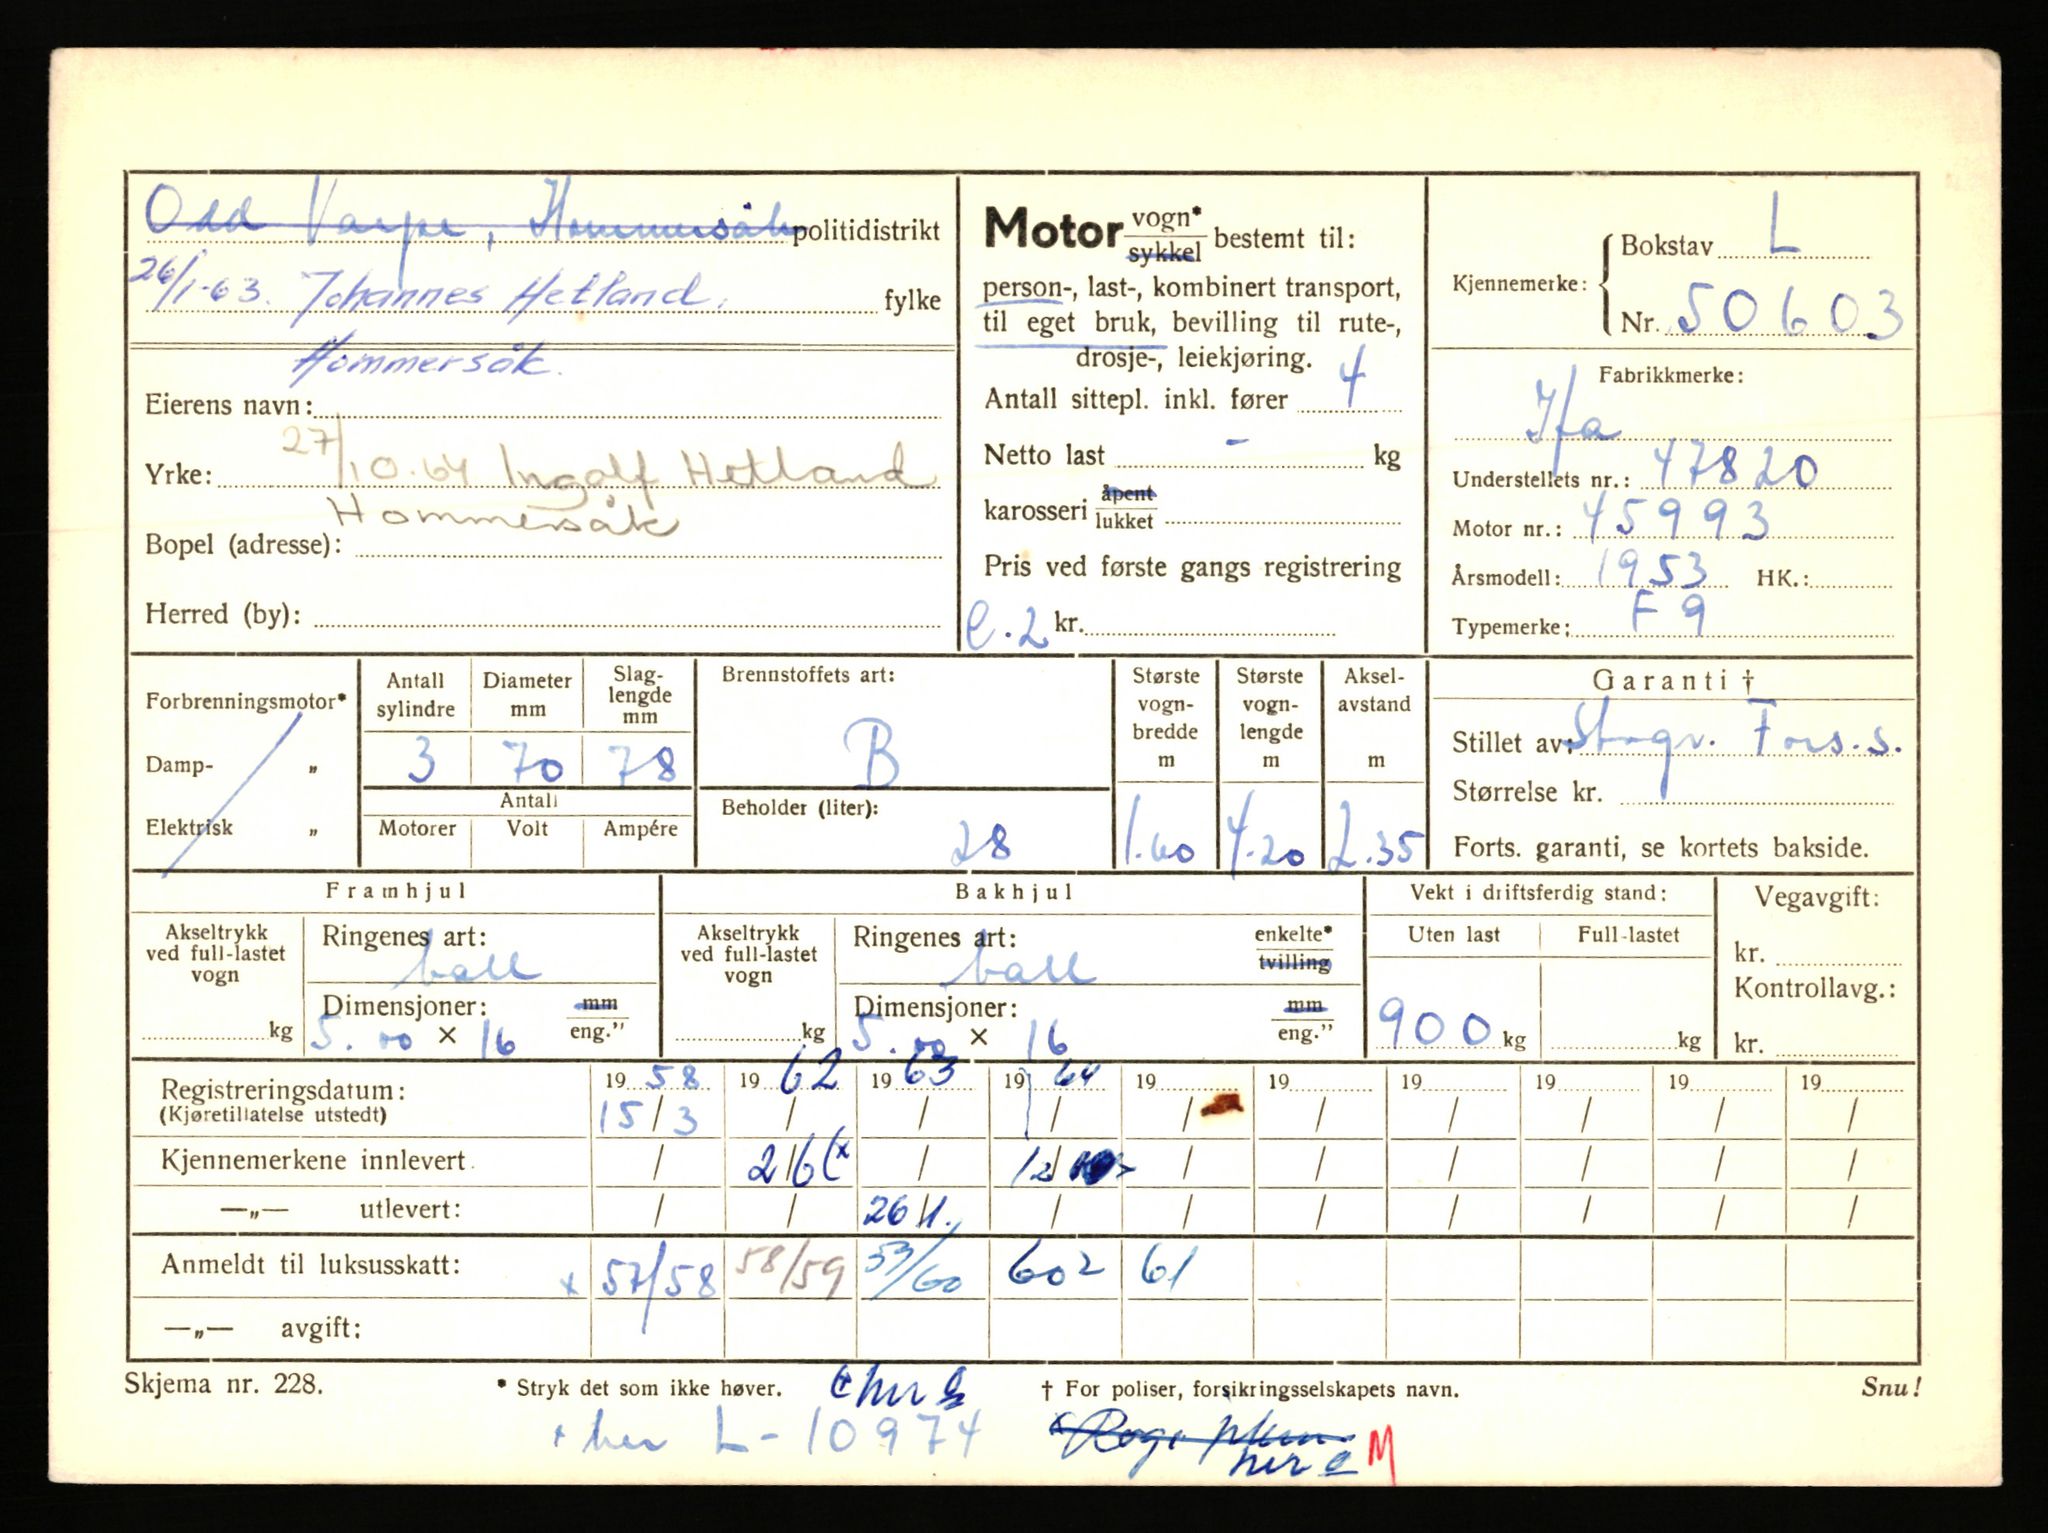 Odd Varpe, Hommersåk politidistrikt
26/1-63. Johannes Hetland, fylke
Hommersåk.
Eierens navn:
27/10-64 Ingolf Hetland
Yrke:
Hommersåk
Bopel (adresse):
Herred (by):
Motor vogn* sykkel bestemt til:
person-, last-, kombinert transport,
til eget bruk, bevilling til rute-,
drosje-, leiekjøring.
Antall sittepl. inkl. fører 4
Netto last - kg
karosseri åpent lukket
Pris ved første gangs registrering
e.2 kr.
Kjennemerke: Bokstav L
Nr. 50603
Fabrikkmerke:
Ifa
Understellets nr.: 47820
Motor nr.: 45993
Årsmodell: 1953 HK.:
Typemerke: F 9
Forbrenningsmotor*
Damp- „
Elektrisk „
Antall sylindre 3
Diameter mm 70
Slag-lengde mm 78
Antall
Motorer Volt Ampére
Brennstoffets art:
B
Beholder (liter):
28
Største vogn-bredde m 1.60
Største vogn-lengde m 4.20
Aksel-avstand m 2.35
Garanti †
Stillet av: Fors.s.
Størrelse kr.
Forts. garanti, se kortets bakside.
Framhjul
Akseltrykk ved full-lastet vogn
kg
Ringenes art:
ball
Dimensjoner: mm eng."
5.00 × 16
Bakhjul
Akseltrykk ved full-lastet vogn
kg
Ringenes art: enkelte* tvilling
ball
Dimensjoner: mm eng."
5.00 × 16
Vekt i driftsferdig stand:
Uten last Full-lastet
900 kg kg
Vegavgift:
kr.
Kontrollavg.:
kr.
Registreringsdatum: 19 58 19 62 19 63 19 64 19 19 19 19 19 19
(Kjøretillatelse utstedt) 15/3 / / / / / / / / /
Kjennemerkene innlevert. / 2/6 (x / 12/ / / / / / /
—„— utlevert: / / 26/1. / / / / / / /
Anmeldt til luksusskatt: x 57/58 58/59 59/60 602 61
—„— avgift:
Skjema nr. 228. * Stryk det som ikke høver. † For poliser, forsikringsselskapets navn. Snu!
+ her L-10974
her e M